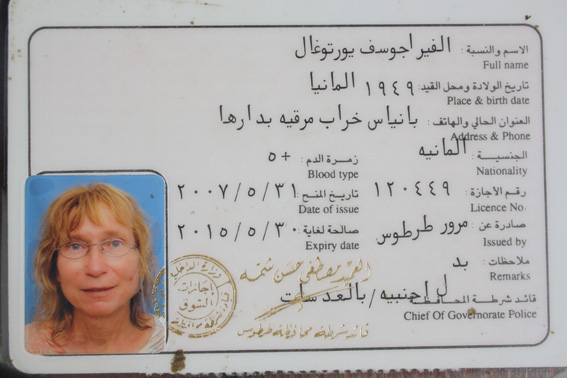 الاسم والنسبة : الفيرا جوسف يورتوغال
Full name
تاريخ الولادة ومحل القيد: ١٩٤٩ المانيا
Place & birth date
العنوان الحالي والهاتف: بانياس خراب مرقيه بدارها
Address & Phone
الجنسية : المانيه
Nationality
زمرة الدم : +٥
Blood type
رقم الأجازة : ١٢٠٤٤٩
Licence No.
تاريخ المنح ٢٠٠٧/٥/٣١
Date of issue
صادرة عن : مرور طرطوس
Issued by
صالحة لغاية : ٢٠١٥/٥/٣٠
Expiry date
ملاحظات : بد
Remarks
ل اجنبيه/بالعدسات
قائد شرطة المحافظة
Chief Of Governorate Police
العميد مصطفى حسن
قائد شرطة محافظة طرطوس